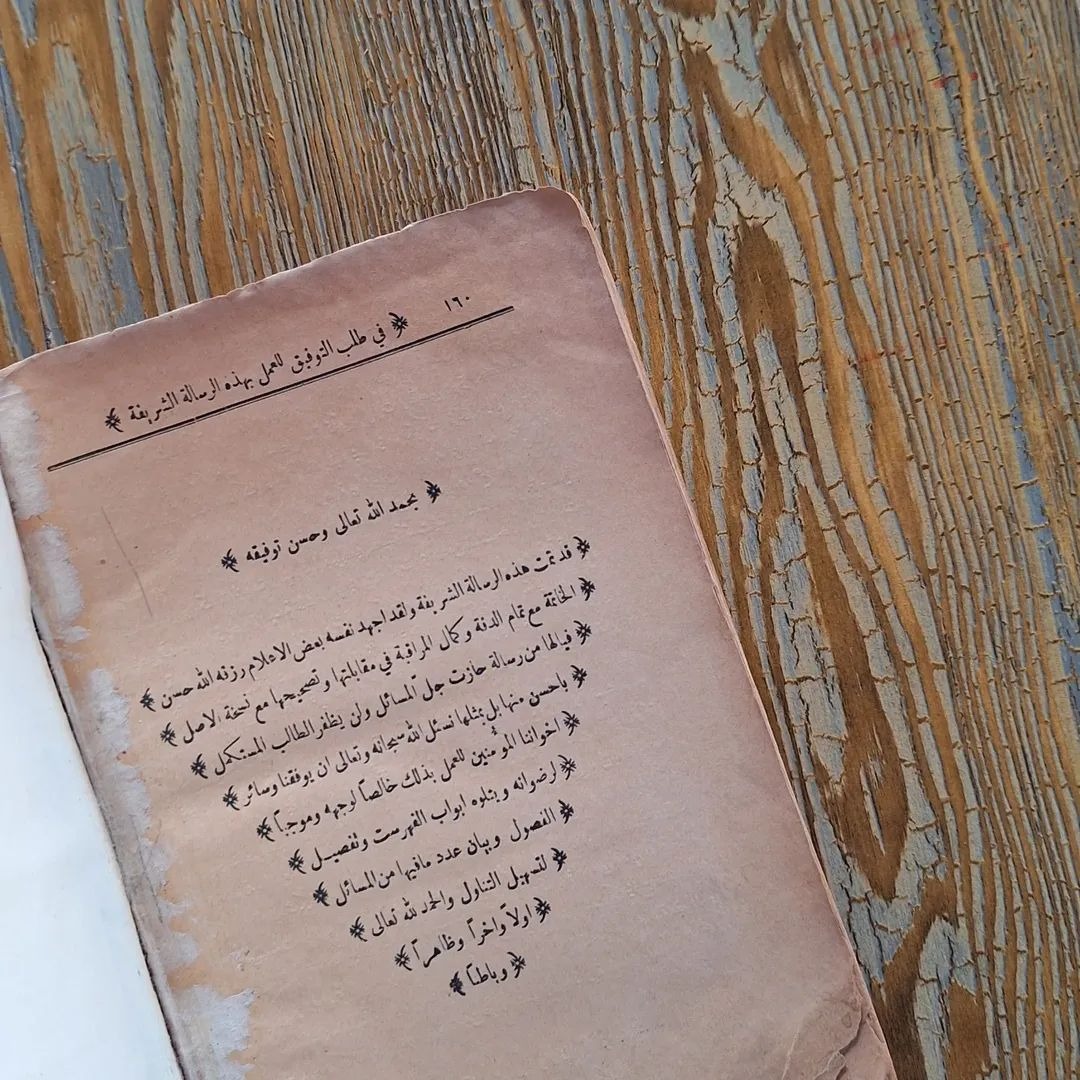 ١٦٠
﴿ في طلب التوفيق للعمل بهذه الرسالة الشريفة ﴾
﴿ بحمد الله تعالى وحسن توفيقه ﴾
﴿ قد تمت هذه الرسالة الشريفة ولقد اجهد نفسه بعض الاعلام رزقه الله حسن ﴾
﴿ الخاتمة مع تمام الدقة وكمال المراقبة في مقابلتها وتصحيحها مع نسخة الاصل ﴾
﴿ فيالها من رسالة حازت جل المسائل ولن يظفر الطالب المستكمل ﴾
﴿ باحسن منها بل بمثلها نسئل الله سبحانه وتعالى ان يوفقنا وسائر ﴾
﴿ اخواننا المؤمنين للعمل بذلك خالصاً لوجهه وموجباً ﴾
﴿ لرضوانه ويتلوه ابواب الفهرست وتفصيل ﴾
﴿ الفصول وبيان عدد مافيها من المسائل ﴾
﴿ لتسهيل التناول والحمد لله تعالى ﴾
﴿ اولاً واخراً وظاهراً ﴾
﴿ وباطناً ﴾